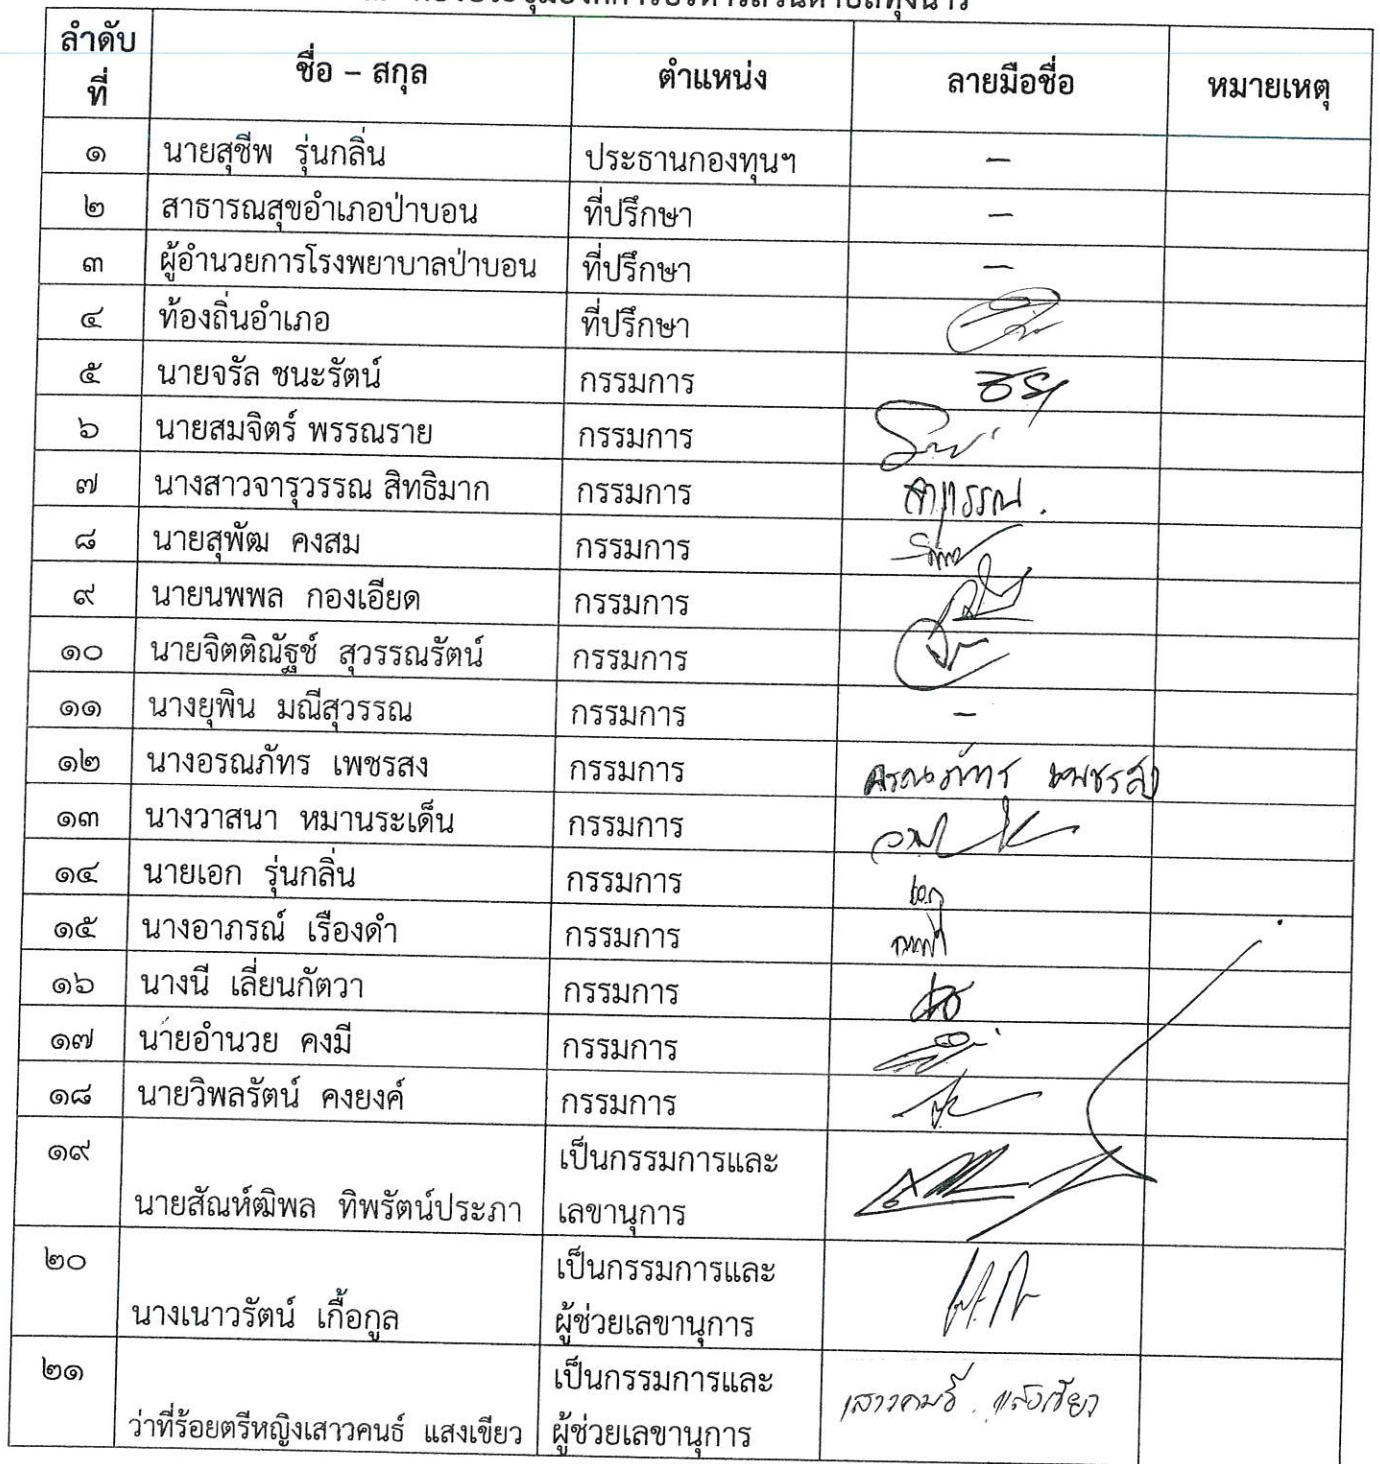 ลำดับ
ที่
ชื่อ – สกุล
ตำแหน่ง
ลายมือชื่อ
หมายเหตุ
๑ นายสุชีพ รุ่นกลิ่น ประธานกองทุนฯ –
๒ สาธารณสุขอำเภอป่าบอน ที่ปรึกษา –
๓ ผู้อำนวยการโรงพยาบาลป่าบอน ที่ปรึกษา –
๔ ท้องถิ่นอำเภอ ที่ปรึกษา
๕ นายจรัล ชนะรัตน์ กรรมการ
๖ นายสมจิตร์ พรรณราย กรรมการ
๗ นางสาวจารุวรรณ สิทธิมาก กรรมการ
๘ นายสุพัฒ คงสม กรรมการ
๙ นายนพพล กองเอียด กรรมการ
๑๐ นายจิตติณัฐช์ สุวรรณรัตน์ กรรมการ
๑๑ นางยุพิน มณีสุวรรณ กรรมการ –
๑๒ นางอรณภัทร เพชรสง กรรมการ อรณภัทร เพชรสง
๑๓ นางวาสนา หมานระเด็น กรรมการ
๑๔ นายเอก รุ่นกลิ่น กรรมการ เอก
๑๕ นางอาภรณ์ เรืองดำ กรรมการ
๑๖ นางนี เลี่ยนกัตวา กรรมการ
๑๗ นายอำนวย คงมี กรรมการ
๑๘ นายวิพลรัตน์ คงยงค์ กรรมการ
๑๙ เป็นกรรมการและ
นายสัณห์ฒิพล ทิพรัตน์ประภา เลขานุการ
๒๐ เป็นกรรมการและ
นางเนาวรัตน์ เกื้อกูล ผู้ช่วยเลขานุการ
๒๑ เป็นกรรมการและ
ว่าที่ร้อยตรีหญิงเสาวคนธ์ แสงเขียว ผู้ช่วยเลขานุการ เสาวคนธ์ แสงเขียว